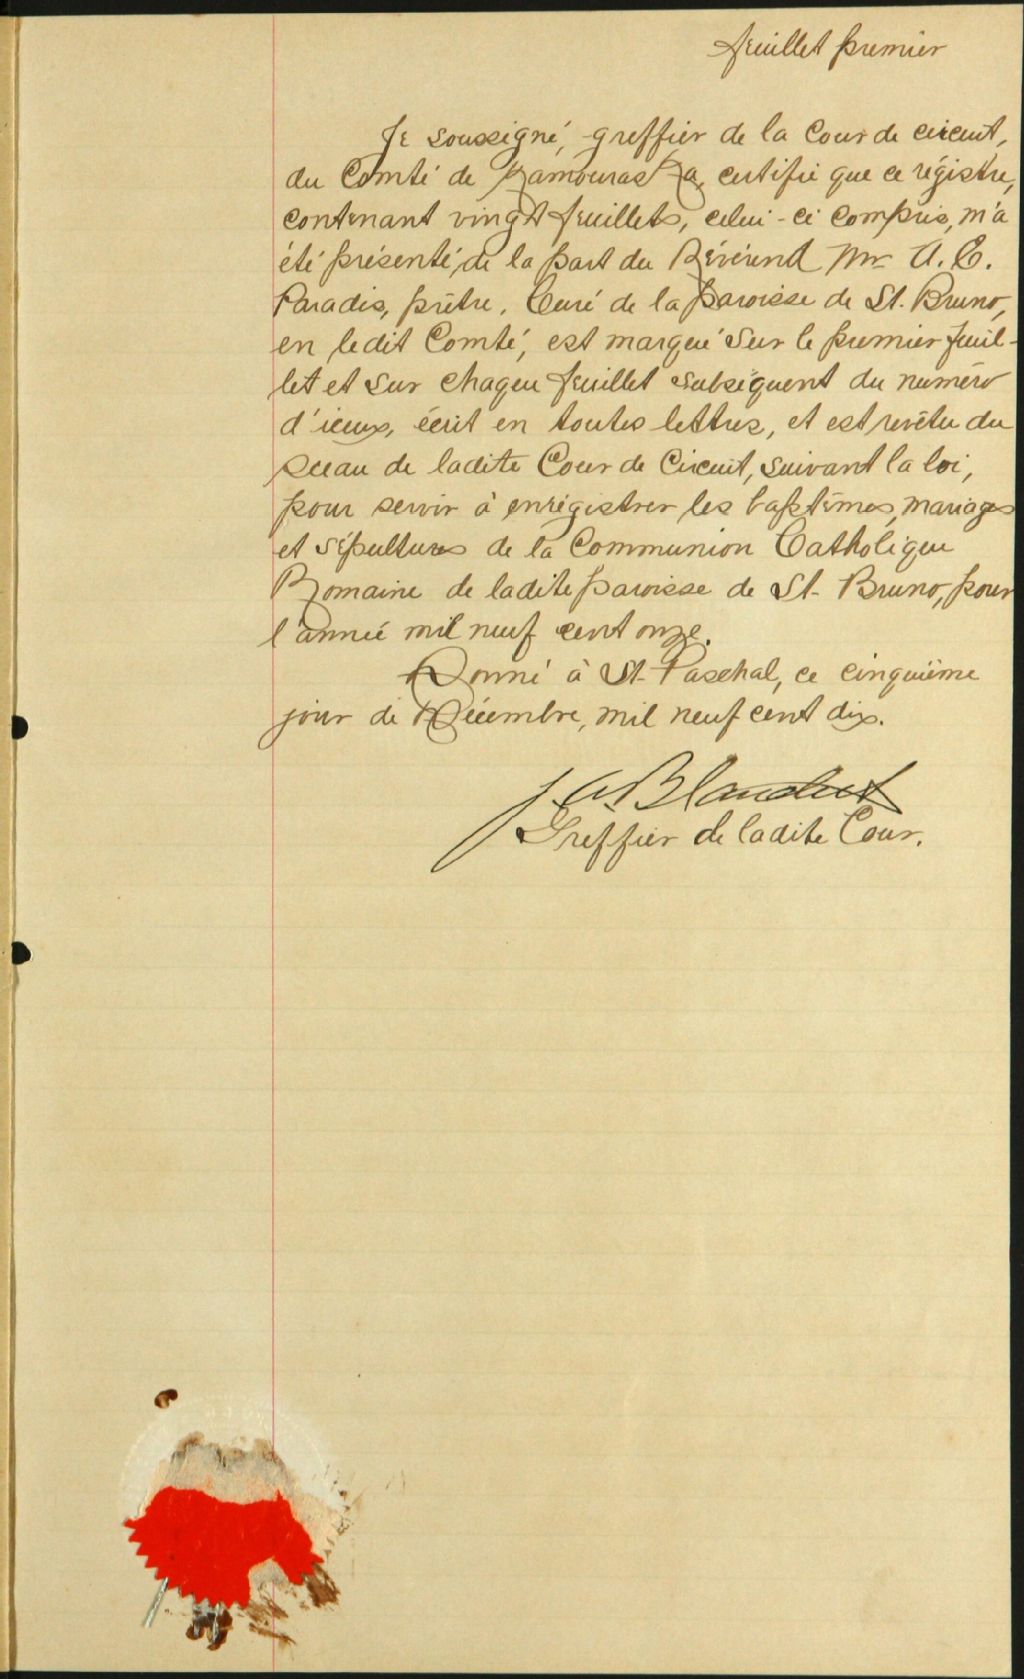 feuillet premier
Je soussigné, greffier de la Cour de circuit,
du Comté de Kamouraska, certifie que ce régistre,
contenant vingt feuillets, celui-ci compris, m'a
été présenté, de la part du Révérend Mr A. C.
Paradis, prêtre, Curé de la paroisse de St. Bruno,
en ledit Comté, est marqué sur le premier feuil-
let et sur chaque feuillet subséquent du numéro
d'iceux, écrit en toutes lettres, et est revêtu du
sceau de ladite Cour de Circuit, suivant la loi,
pour servir à enrégistrer les baptêmes, mariages
et sépultures de la Communion Catholique
Romaine de ladite paroisse de St- Bruno, pour
l'année mil neuf cent onze.
Donné à St- Paschal, ce cinquième
jour de Décembre, mil neuf cent dix.
J. A. Blanchet
Greffier de ladite Cour.